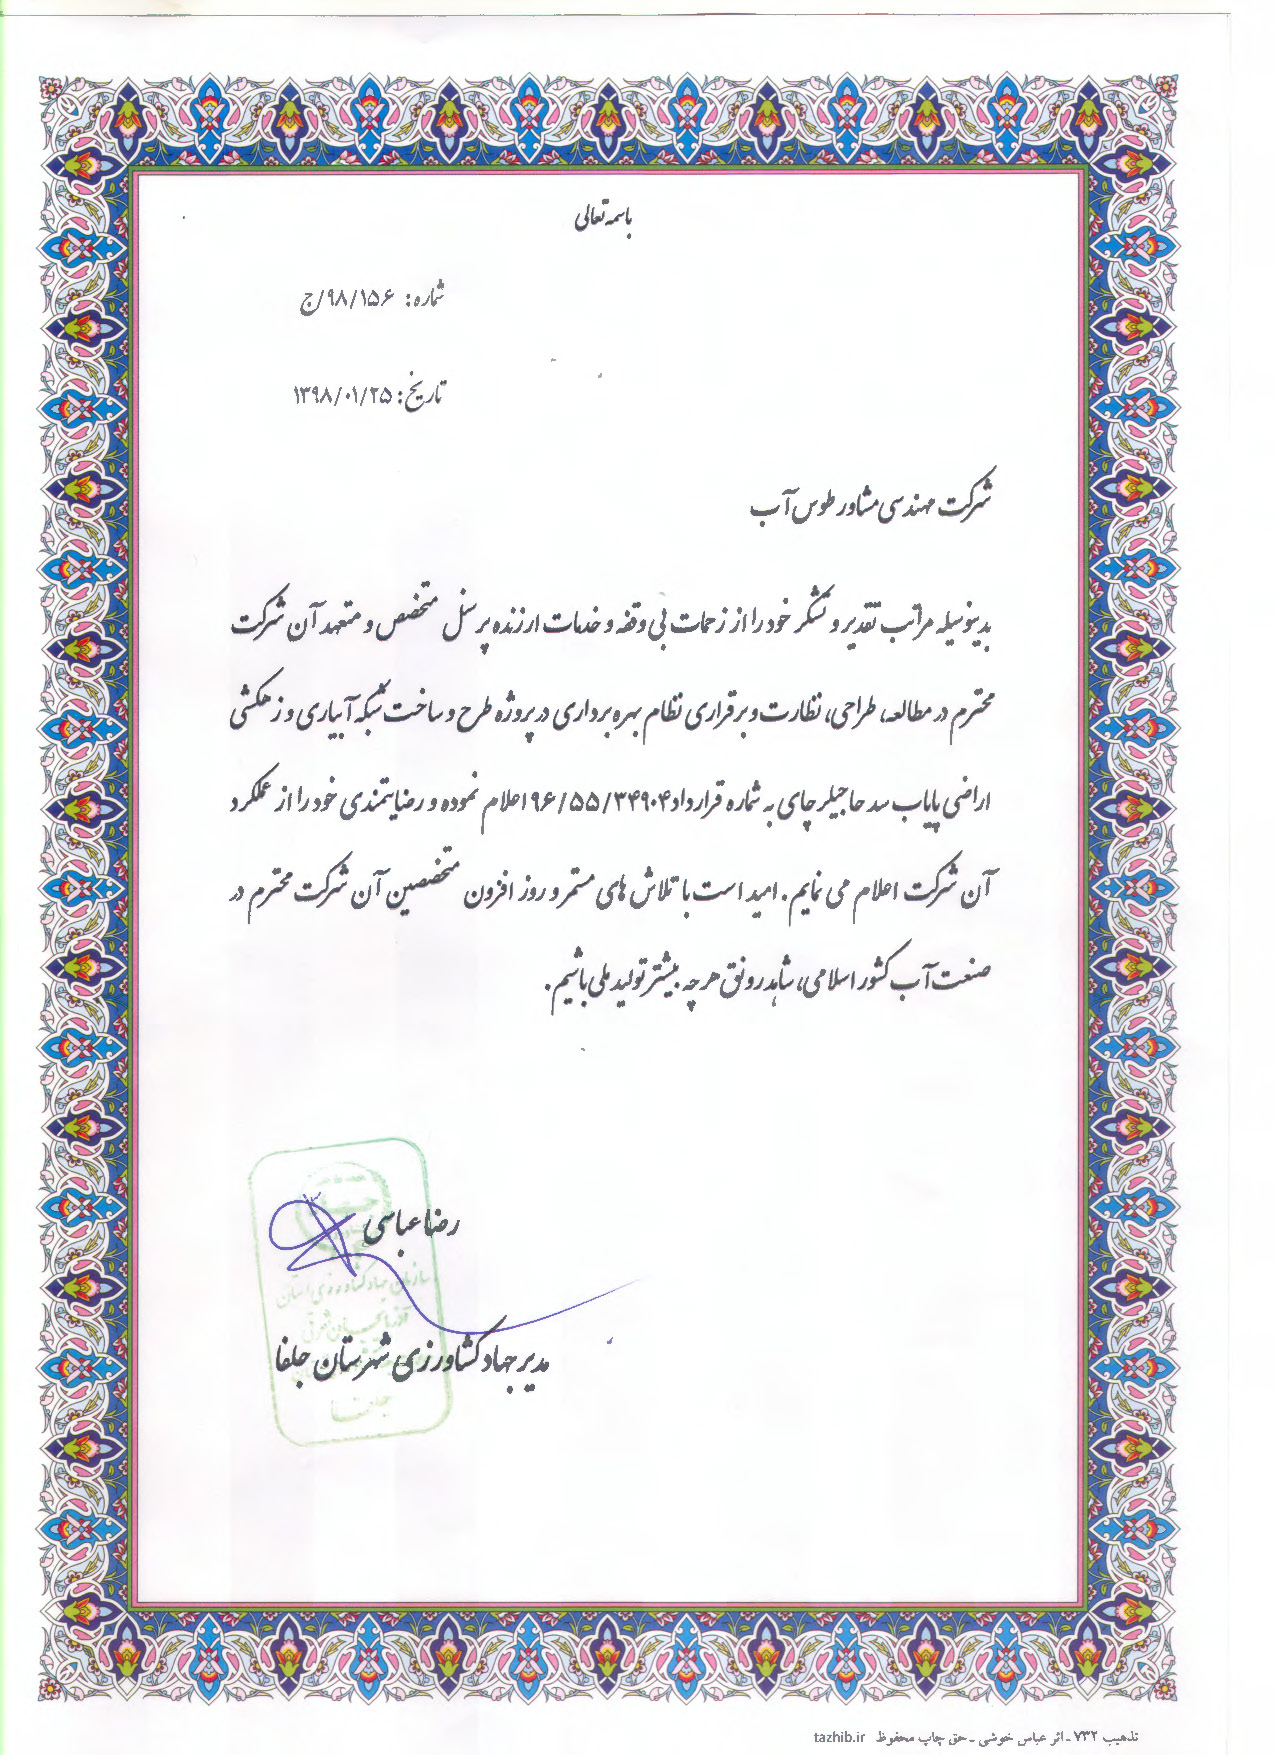 باسمه تعالی
شماره: ۹۸/۱۵۶/ج
تاریخ: ۱۳۹۸/۰۱/۲۵
شرکت مهندسی مشاور طوس آب
بدینوسیله مراتب تقدیر و تشکر خود را از زحمات بی وقفه و خدمات ارزنده پرسنل متخصص و متعهد آن شرکت
محترم در مطالعه، طراحی، نظارت و برقراری نظام بهره برداری در پروژه طرح و ساخت شبکه آبیاری و زهکشی
اراضی پایاب سد حاجیلرچای به شماره قرارداد ۹۶/۵۵/۳۴۹۰۴ اعلام نموده و رضایتمندی خود را از عملکرد
آن شرکت اعلام می نمایم. امید است با تلاش های مستمر و روز افزون متخصصین آن شرکت محترم در
صنعت آب کشور اسلامی، شاهد رونق هر چه بیشتر تولید ملی باشیم.
رضا عباسی
سازمان جهاد کشاورزی استان
آذربایجان شرقی
مدیر جهاد کشاورزی شهرستان جلفا
جلفا
تذهیب ۷۳۲ - اثر عباس خوشی - حق چاپ محفوظ tazhib.ir